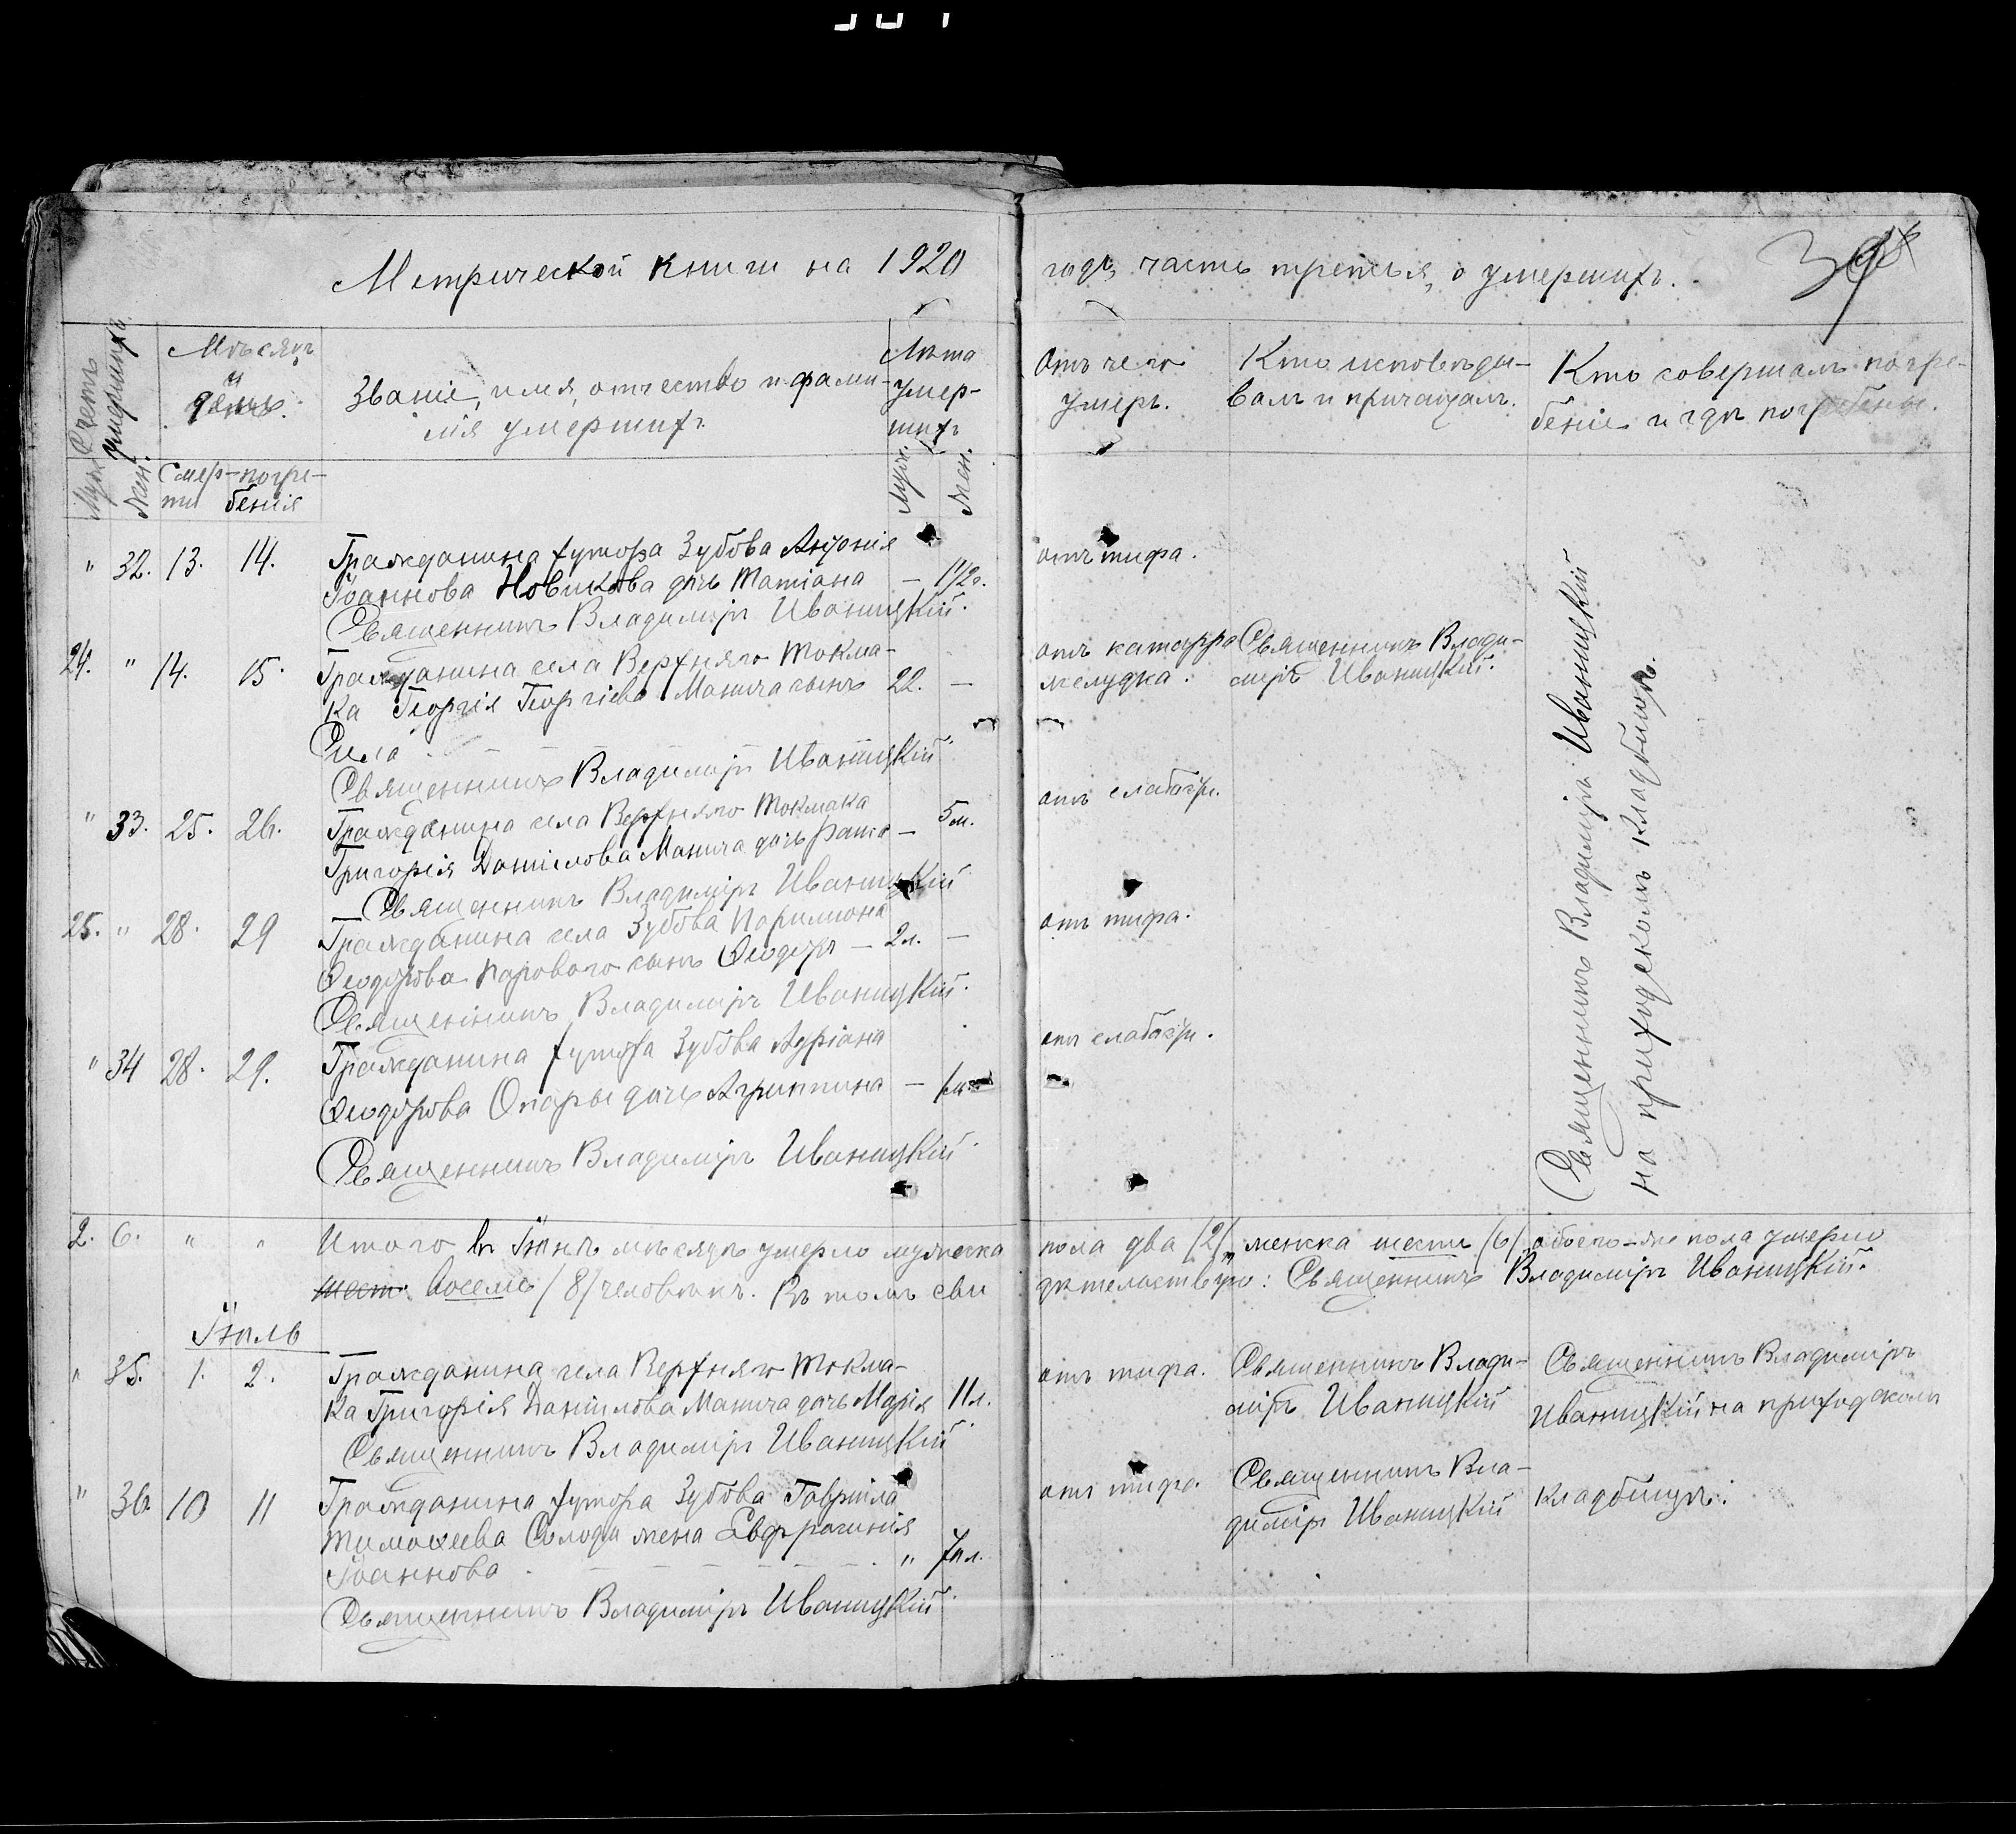 Метрической книги на 1920
годъ, часть третья, о умершихъ.
Счетъ умершихъ.
Муж.
Жен.
Мѣсяцъ
и
день.
Смер- погре-
ти бенія
Званіе, имя, отчество и фами-
лія умершихъ
Лѣта
умер-
шихъ
Муж.
Жен.
Отъ чего
умеръ.
Кто исповѣды-
валъ и причащалъ.
Кто совершалъ погре-
беніе и гдѣ погребены.
" 32. 13. 14. Гражданина хутора Зубова
Іоаннова Новикова дочь Татіана — 1 1/2 г.
отъ тифа.
Священникъ Владиміръ Иваницкій.
24. " 14. 15. Гражданина села Верхняго Токма-
ка Георгія Георгіева Манича сынъ 22. —
отъ катарра Священникъ Влади-
желудка. міръ Иваницкій.
Священникъ Владиміръ Иваницкій
" 33. 25. 26. Гражданина села Верхняго Токмака 5 м.
Григорія Даніилова Манича дочь —
отъ слабости.
Священникъ Владиміръ Иваницкій
25. " 28. 29 Гражданина села Зубова
Ѳеодорова сынъ Ѳеодоръ — 2 л. —
отъ тифа.
Священникъ Владиміръ Иваницкій.
" 34 28. 29. Гражданина хутора Зубова Адріана
Ѳеодорова Опары дочь Агриппина —
отъ слабости.
Священникъ Владиміръ Иваницкій
Священникъ Владиміръ Иваницкій
на приходскомъ кладбищѣ.
2. 6. " " Итого въ Іюнѣ мѣсяцѣ умерло мужеска
пола два /2/, женска шесть /6/, обоего-же пола умерло
шест восемь /8/ человѣкъ. Въ томъ сви
дѣтельствую: Священникъ Владиміръ Иваницкій.
Іюль
" 35. 1. 2. Гражданина села Верхняго Токма-
ка Григорія Даніилова Манича дочь Марія 11 л.
отъ тифа. Священникъ Влади-
міръ Иваницкій
Священникъ Владиміръ
Иваницкій на приходскомъ
Священникъ Владиміръ Иваницкій
" 36. 10 11 Гражданина хутора Зубова Гавріила
Тимоѳеева Солоди жена Евфросинія
Іоаннова " 70 л.
отъ тифа. Священникъ Вла-
диміръ Иваницкій
кладбищѣ.
Священникъ Владиміръ Иваницкій